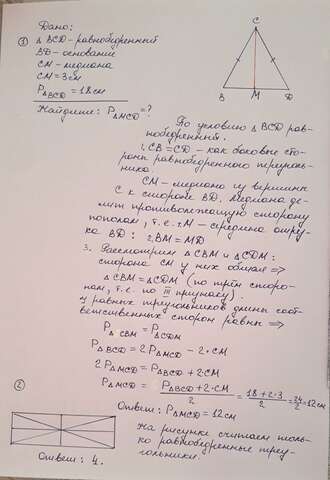 Дано:
① Δ BCD – равнобедренный
BD – основание
CM – медиана
CM = 3 см
P ΔBCD = 18 см
Найдите: P ΔMCD = ?
C
B M D
По условию Δ BCD рав-
нобедренный.
1. CB = CD – как боковые сто-
роны равнобедренного треуголь-
ника.
CM – медиана из вершины
C к стороне BD. Медиана де-
лит противолежащую сторону
пополам, т.е. т. M – середина
BD: 2. BM = MD
3. Рассмотрим Δ CBM и Δ CDM:
сторона CM у них общая ⇒
Δ CBM = Δ CDM (по трём сторо-
нам, т.е. по III признаку).
У равных треугольников длины соот-
ветственных сторон равны ⇒
P Δ CBM = P ΔCDM
P ΔBCD = 2P ΔMCD – 2·CM
2P ΔMCD = P ΔBCD + 2·CM
P ΔMCD = (P ΔBCD + 2·CM)/2 = (18+2·3)/2 = 24/2 = 12 см
Ответ: P ΔMCD = 12 см
②
На рисунке считаем толь-
ко равнобедренные треу-
гольники.
Ответ: 4.